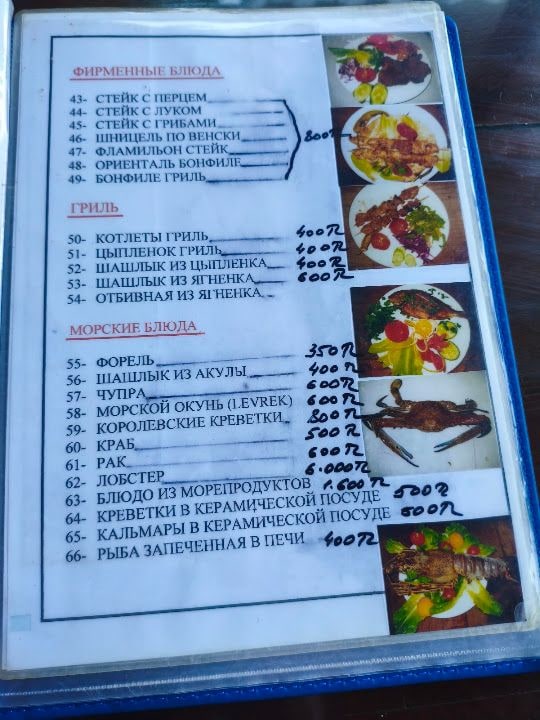 ФИРМЕННЫЕ БЛЮДА
43- СТЕЙК С ПЕРЦЕМ
44- СТЕЙК С ЛУКОМ
45- СТЕЙК С ГРИБАМИ
46- ШНИЦЕЛЬ ПО ВЕНСКИ 800 TL
47- ФЛАМИЛЬОН СТЕЙК
48- ОРИЕНТАЛЬ БОНФИЛЕ
49- БОНФИЛЕ ГРИЛЬ
ГРИЛЬ
50- КОТЛЕТЫ ГРИЛЬ 400 TL
51- ЦЫПЛЕНОК ГРИЛЬ 400 TL
52- ШАШЛЫК ИЗ ЦЫПЛЕНКА 400 TL
53- ШАШЛЫК ИЗ ЯГНЕНКА 600 TL
54- ОТБИВНАЯ ИЗ ЯГНЕНКА
МОРСКИЕ БЛЮДА
55- ФОРЕЛЬ 350 TL
56- ШАШЛЫК ИЗ АКУЛЫ 400 TL
57- ЧУПРА 600 TL
58- МОРСКОЙ ОКУНЬ (LEVREK) 600 TL
59- КОРОЛЕВСКИЕ КРЕВЕТКИ 800 TL
60- КРАБ 500 TL
61- РАК 600 TL
62- ЛОБСТЕР 6.000 TL
63- БЛЮДО ИЗ МОРЕПРОДУКТОВ 1.600 TL
64- КРЕВЕТКИ В КЕРАМИЧЕСКОЙ ПОСУДЕ 500 TL
65- КАЛЬМАРЫ В КЕРАМИЧЕСКОЙ ПОСУДЕ 500 TL
66- РЫБА ЗАПЕЧЕННАЯ В ПЕЧИ 400 TL